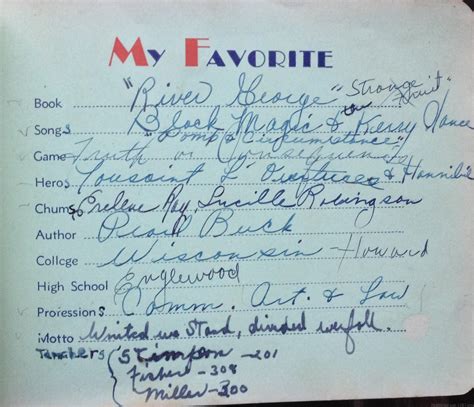 My Favorite
Book "River George" "Strange Fruit"
Songs Black Magic & Kerry Dance
"Pomp & Circumstance"
Game Truth or Consequences
Heros Toussaint L' Ouverture & Hannibal
Chums Erelene Ray, Lucille Robingson
Author Pearl Buck
College Wisconsin - Howard
High School Englewood
Professions Comm. Art. & Law
Motto United we Stand, divided we fall.
Teachers { Stimpson - 201
Fisher - 308
Miller - 300